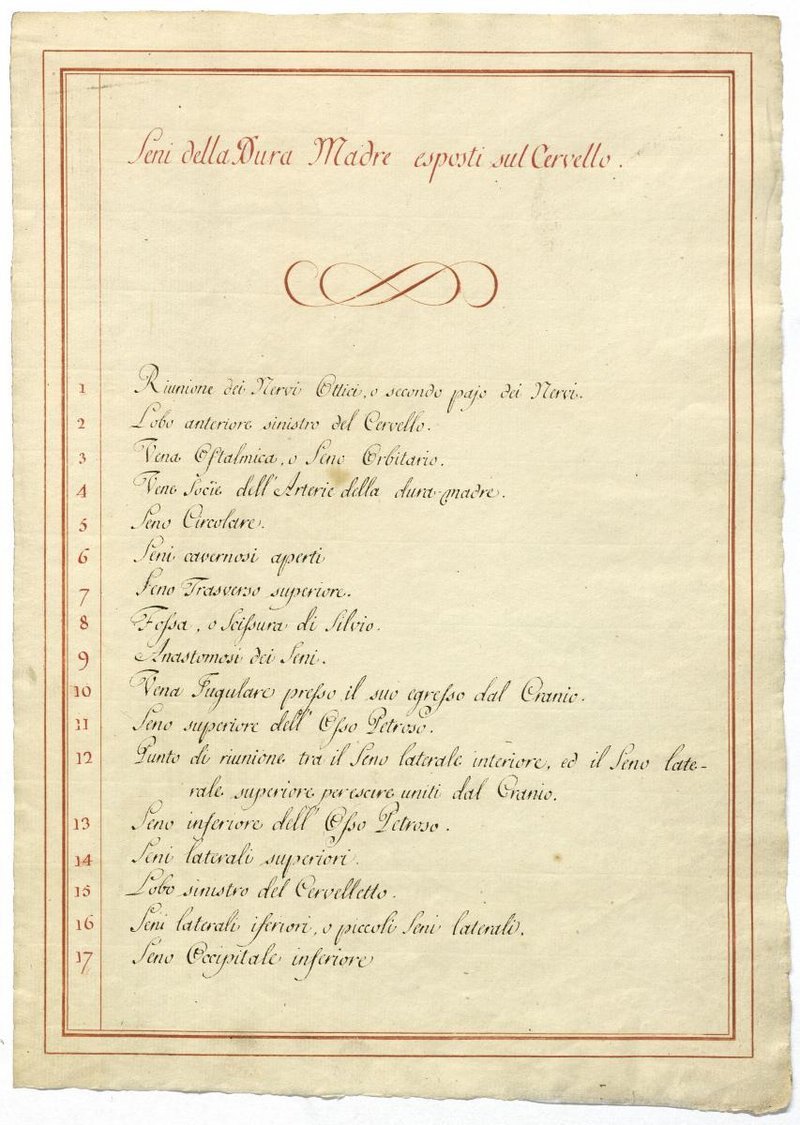 Seni della Dura Madre esposti sul Cervello.
1 Riunione dei Nervi Ottici, o secondo pajo dei Nervi.
2 Lobo anteriore sinistro del Cervello.
3 Vena Oftalmica, o Seno Orbitario.
4 Vene Socie dell'Arterie della dura-madre.
5 Seno Circolare.
6 Seni cavernosi aperti
7 Seno Trasverso superiore.
8 Fossa, o Scissura di Silvio.
9 Anastomosi dei Seni.
10 Vena Jugulare presso il suo egresso dal Cranio.
11 Seno superiore dell'Osso Petroso.
12 Punto di riunione tra il Seno laterale interiore, ed il Seno late-
rale superiore per escire uniti dal Cranio.
13 Seno inferiore dell'Osso Petroso.
14 Seni laterali superiori.
15 Lobo sinistro del Cervelletto.
16 Seni laterali iferiori, o piccoli Seni laterali.
17 Seno Occipitale inferiore